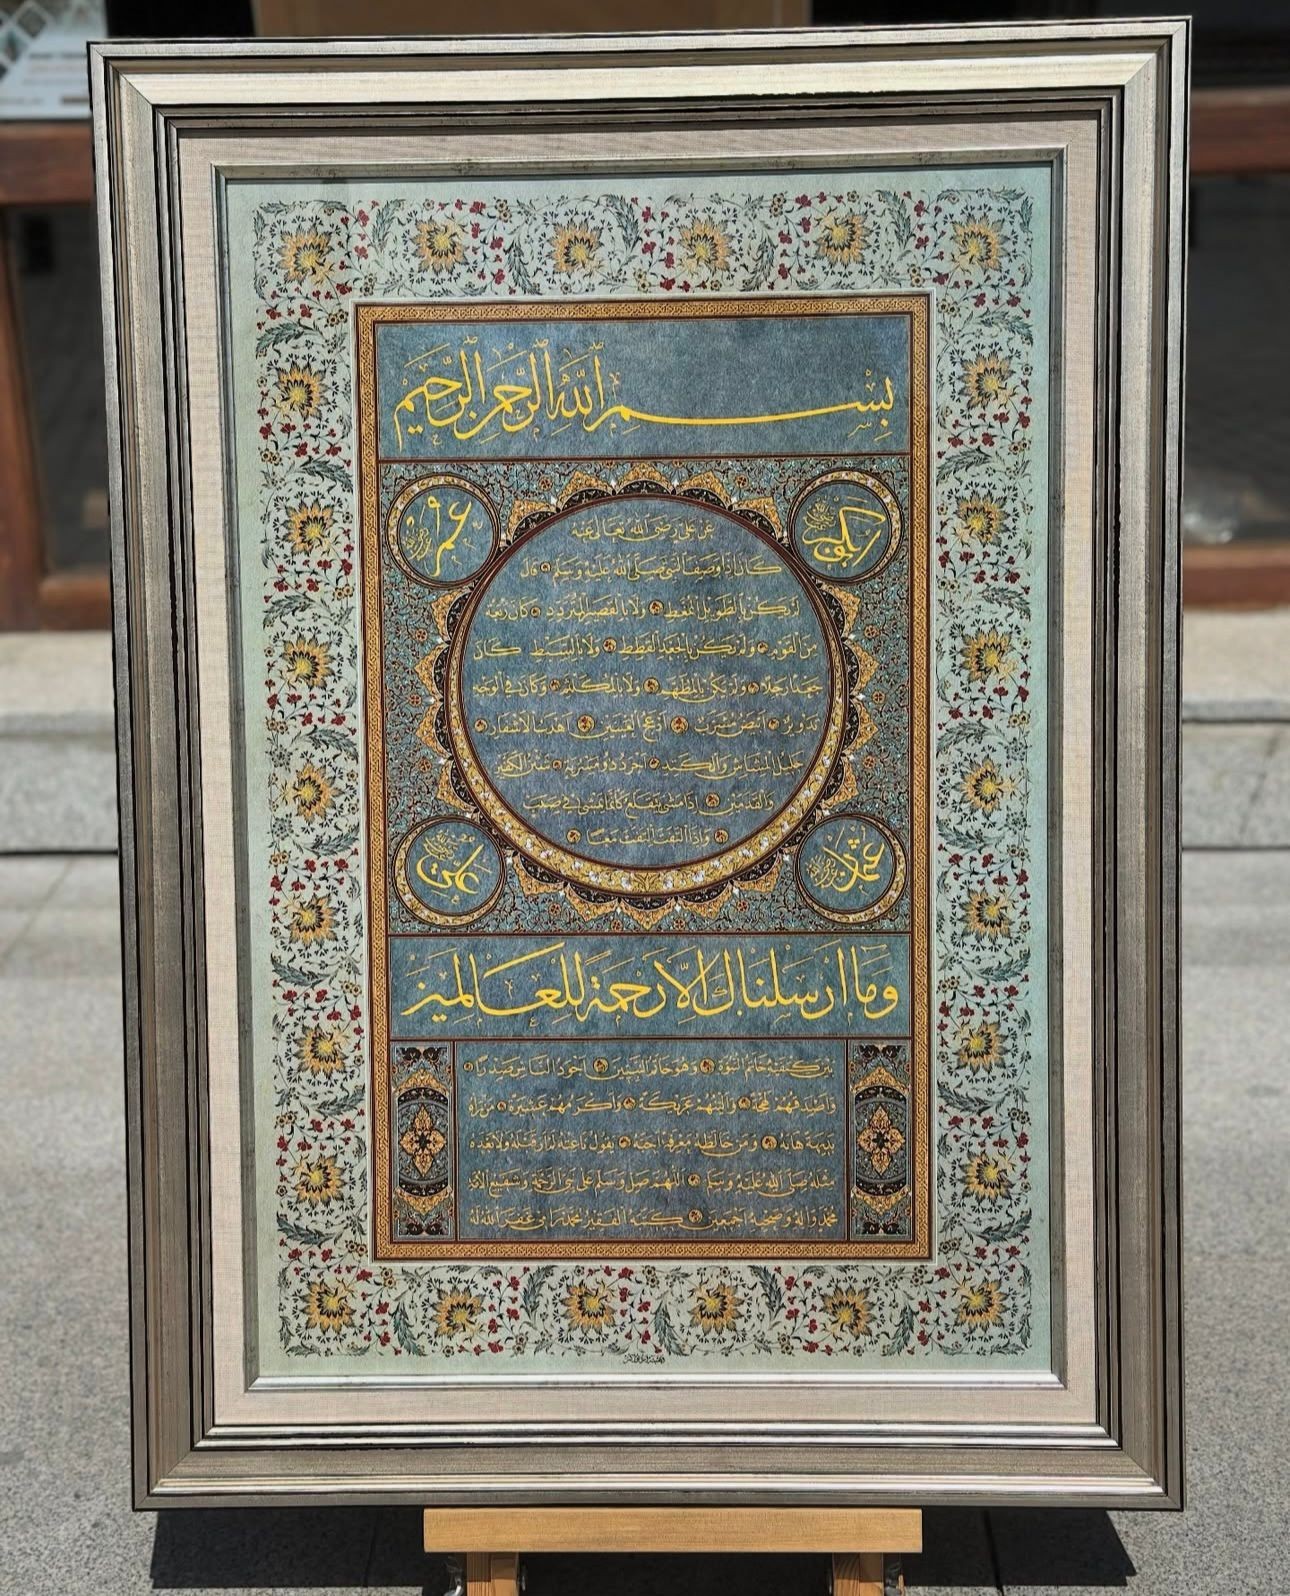 بِسْمِ اللَّهِ الرَّحْمَنِ الرَّحِيمِ
أبو بكر
عمر
عن علي رضي الله تعالى عنه
كان إذا وصف النبي صلى الله عليه وسلم قال
لم يكن بالطويل الممغط ولا بالقصير المتردد كان ربعة
من القوم ولم يكن بالجعد القطط ولا بالسبط كان
جعدا رجلا ولم يكن بالمطهم ولا بالمكلثم وكان في الوجه
تدوير أبيض مشرب أدعج العينين أهدب الأشفار
جليل المشاش والكتد أجرد ذو مسربة شثن الكفين
والقدمين إذا مشى يتقلع كأنما يمشي في صبب
وإذا التفت التفت معا
عثمان
علي
وَمَا أَرْسَلْنَاكَ إِلَّا رَحْمَةً لِلْعَالَمِينَ
بين كتفيه خاتم النبوة وهو خاتم النبيين أجود الناس صدرا
وأصدقهم لهجة وألينهم عريكة وأكرمهم عشيرة من رآه
بديهة هابه ومن خالطه معرفة أحبه يقول ناعته لم أر قبله ولا بعده
مثله صلى الله عليه وسلم اللهم صل وسلم على نبي الرحمة وشفيع الأمة
محمد وآله وصحبه أجمعين كتبه الفقير محمد غفر الله له